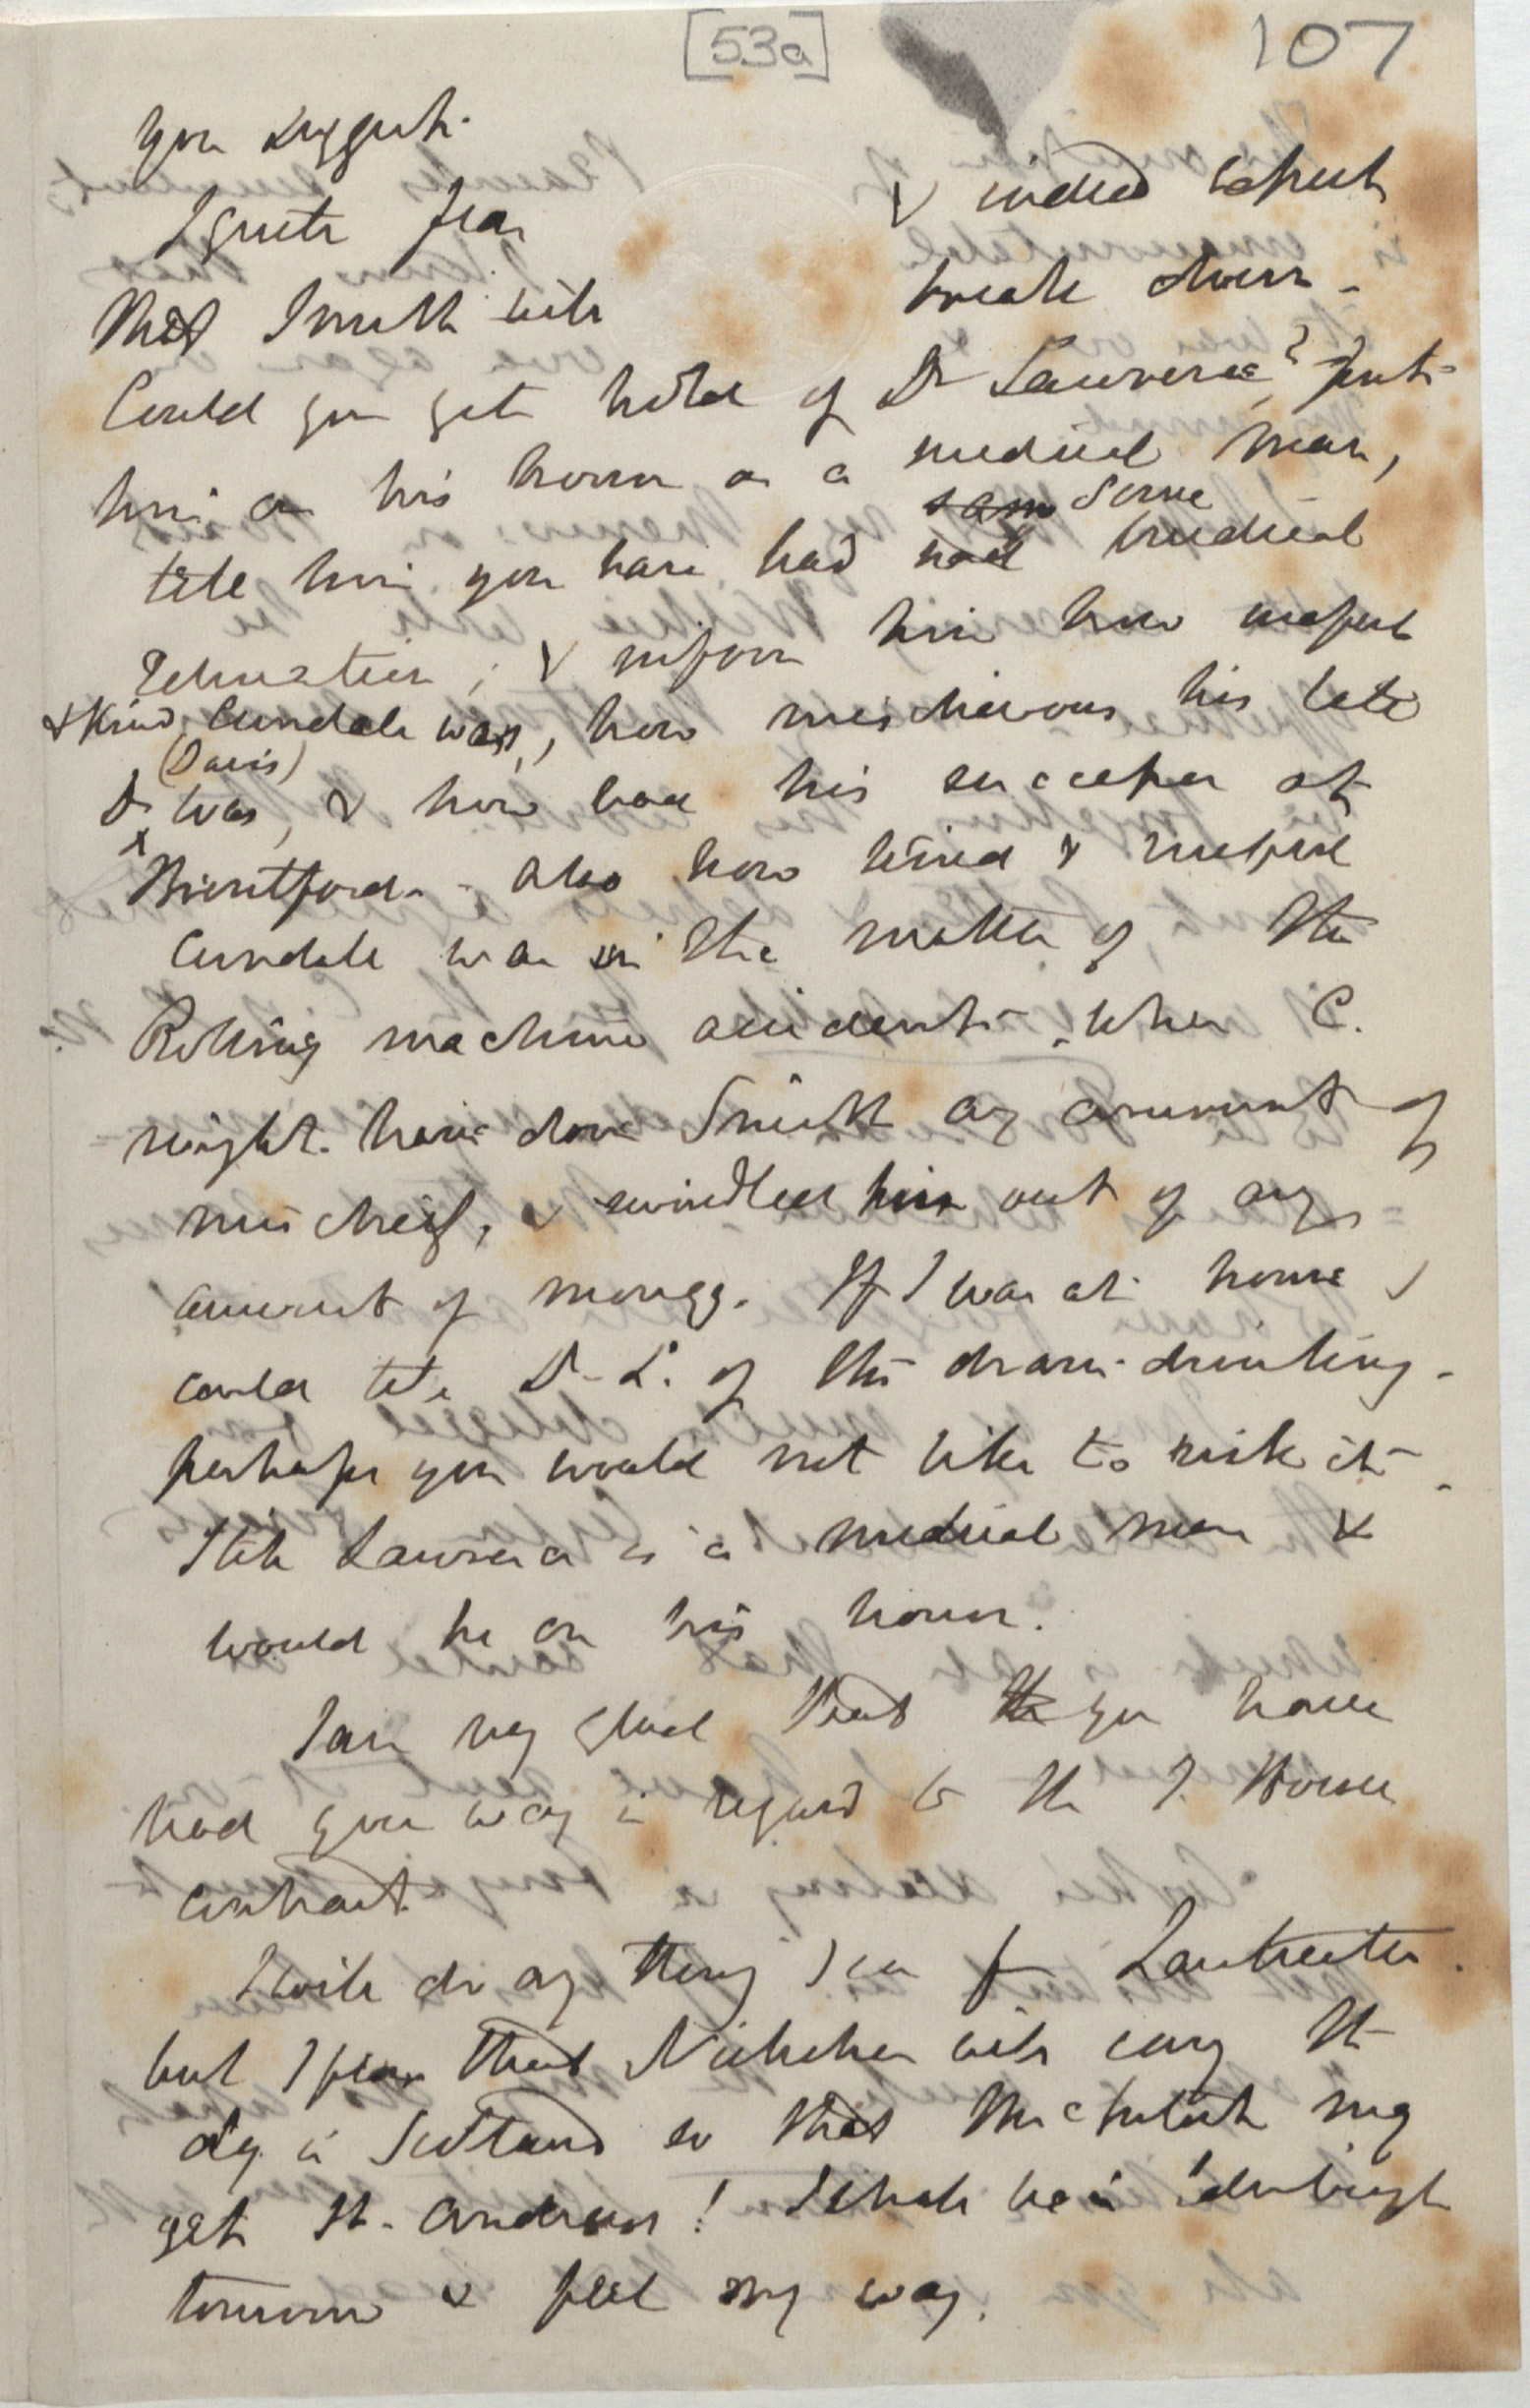 [53a]
107
you suggest.
I quite fear
that Smith will & indeed expect
break down -
Could you get hold of Dr Lawrence? put
him on his honor as a medical man,
tell him you have had some medical
Education; & inform him how useful
& kind Cundale was, how mischievous his late
(Davis)
Dr was, & how bad his successor at
Brentford - also how kind & useful
Cundale was in the matter of the
Rolling machine accident - when C.
might have done Smith any amount of
mischeif, & swindled him out of any
amount of money. If I was at home I
could tell Dr L. of the dram-drinking -
perhaps you would not like to risk it -
Still Lawrence is a medical man &
would be on his honor.
I am very glad that you have
had your way in regard to the I. House
contract.
I will do any thing I can for Lankester.
but I fear that Nicholson will carry the
day in Scotland so that McIntosh may
get St. Andrews! I shall be in Edinburgh
tomorrow & feel my way.